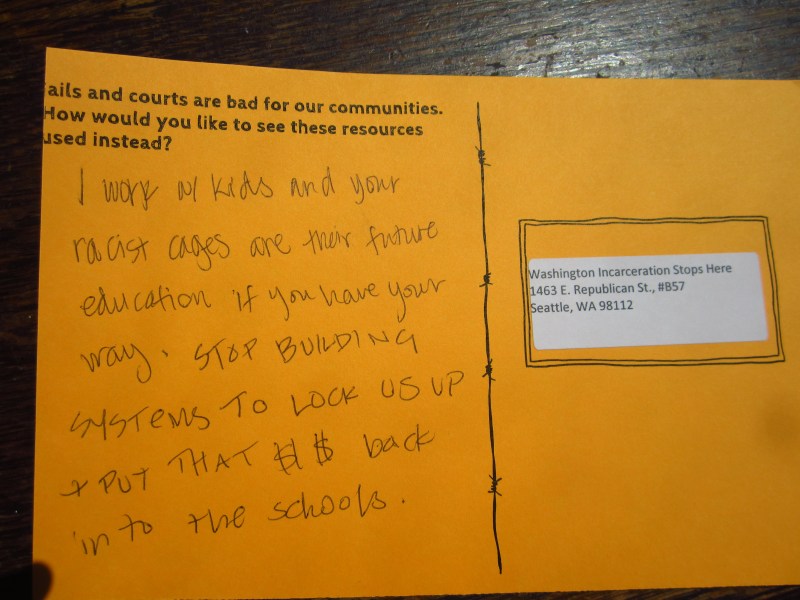 ails and courts are bad for our communities.
How would you like to see these resources
used instead?
I work w/ kids and your
racist cages are their future
education if you have your
way. STOP BUILDING
SYSTEMS TO LOCK US UP
+ PUT THAT $$ back
into the schools.
Washington Incarceration Stops Here
1463 E. Republican St., #B57
Seattle, WA 98112